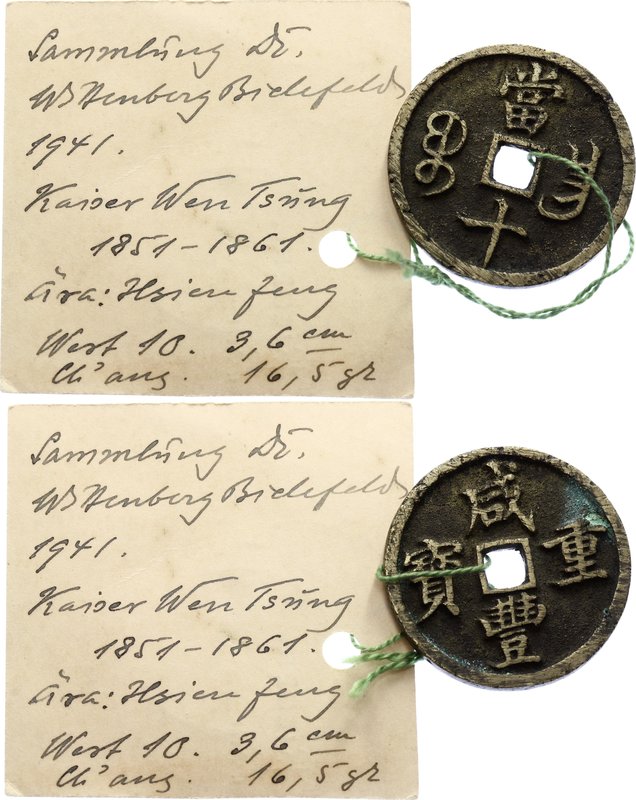 Sammlung Dr.
Wittenberg Bielefeld
1941.
Kaiser Wen Tsung
1851-1861.
Ära: Hsien feng
Wert 10. 3,6 cm
Ch'ang. 16,5 gr
當十
Sammlung Dr.
Wittenberg Bielefeld
1941.
Kaiser Wen Tsung
1851-1861.
Ära: Hsien feng
Wert 10. 3,6 cm
Ch'ang. 16,5 gr
咸豐重寶